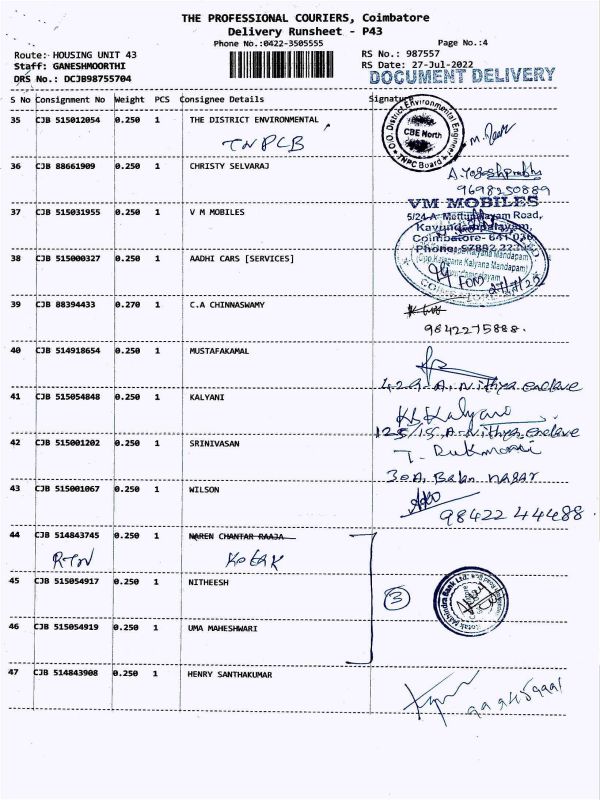 THE PROFESSIONAL COURIERS, Coimbatore
Delivery Runsheet - P43
Phone No.:0422-3505555
Page No.:4
Route:- HOUSING UNIT 43
RS No.: 987557
Staff: GANESHMOORTHI
RS Date: 27-Jul-2022
DRS No.: DCJB98755704
DOCUMENT DELIVERY
S No Consignment No Weight PCS Consignee Details Signature
35 CJB 515012054 0.250 1 THE DISTRICT ENVIRONMENTAL
TNPCB
O.O. District Environmental Engineer
CBE North
TNPC Board
36 CJB 88661909 0.250 1 CHRISTY SELVARAJ
9698250889
37 CJB 515031955 0.250 1 V M MOBILES
VM MOBILES
5/24-A Mettupalayam Road,
Kavundampalayam,
38 CJB 515000327 0.250 1 AADHI CARS [SERVICES]
27/7/22
39 CJB 88394433 0.270 1 C.A CHINNASWAMY
9842275888.
40 CJB 514918654 0.250 1 MUSTAFAKAMAL
429-A. Nithya enclave
41 CJB 515054848 0.250 1 KALYANI
Kalyani
125/15 A-Nithya enclave
42 CJB 515001202 0.250 1 SRINIVASAN
T. Rukmani
30A, Baba nagar
43 CJB 515001067 0.250 1 WILSON
98422 44488.
44 CJB 514843745 0.250 1 NAREN CHANTAR RAAJA
RTN Kotak
45 CJB 515054917 0.250 1 NITHEESH
3
Kotak Mahindra Bank Ltd.
46 CJB 515054919 0.250 1 UMA MAHESHWARI
47 CJB 514843908 0.250 1 HENRY SANTHAKUMAR